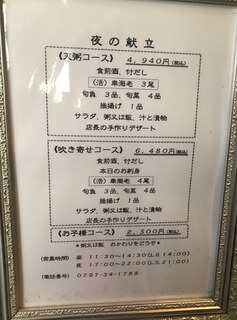 夜の献立
《天粥コース》 4,940円(税込)
食前酒、付だし
(活)車海老 3尾
旬魚 3品、旬菜 4品
掻揚げ 1品
サラダ、粥又は飯、汁と漬物
店長の手作りデザート
《吹き寄せコース》 6,480円(税込)
食前酒、付だし
本日のお刺身
(活)車海老 4尾
旬魚 3品、旬菜 4品
掻揚げ 1品
サラダ、粥又は飯、汁と漬物
店長の手作りデザート
《お子様コース》 2,500円(税込)
*粥又は飯 おかわりをどうぞ*
《営業時間》 昼 11:30~14:30(L.S14:00)
夜 17:00~22:00(L.S21:00)
《電話番号》 0797-34-1788